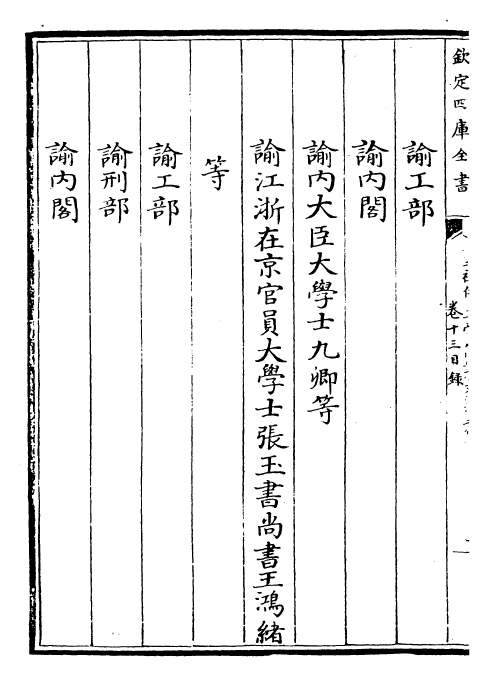 欽定四庫全書
卷十三目錄
諭工部
諭内閣
諭内大臣大學士九卿等
諭江浙在京官員大學士張玉書尚書王鴻緒
等
諭工部
諭刑部
諭内閣